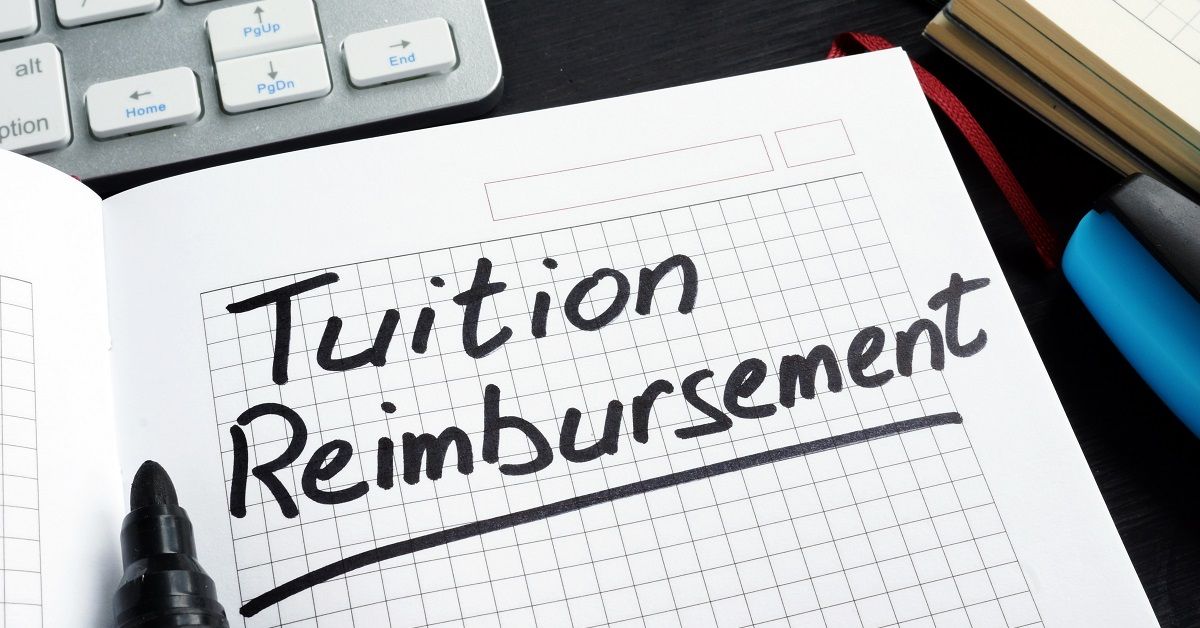 PgUp
PgDn
End
Home
alt
ption
Tuition
Reimbursement